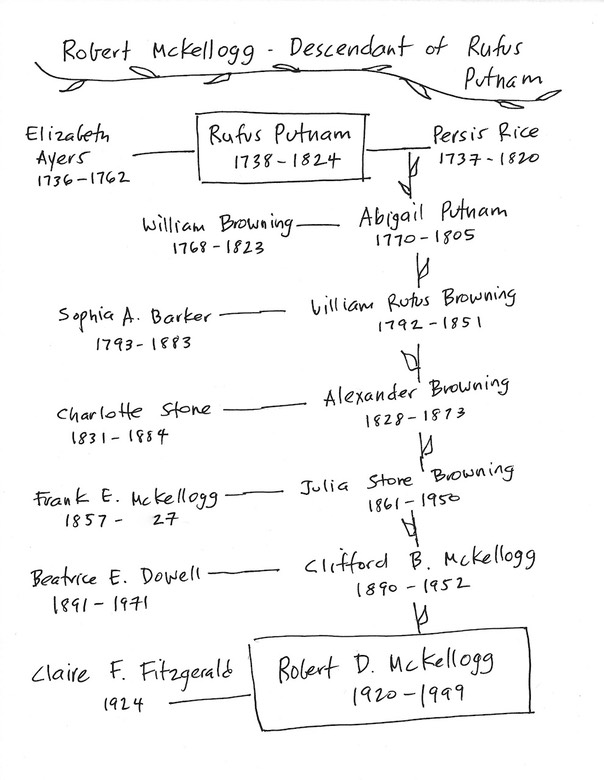 Robert McKellogg - Descendant of Rufus
Putnam
Elizabeth
Ayers
1736-1762
Rufus Putnam
1738-1824
Persis Rice
1737-1820
William Browning
1768-1823
Abigail Putnam
1770-1805
Sophia A. Barker
1793-1883
William Rufus Browning
1792-1851
Charlotte Stone
1831-1884
Alexander Browning
1828-1873
Frank E. McKellogg
1857- 27
Julia Stone Browning
1861-1950
Beatrice E. Dowell
1891-1971
Clifford B. McKellogg
1890-1952
Claire F. Fitzgerald
1924
Robert D. McKellogg
1920-1999